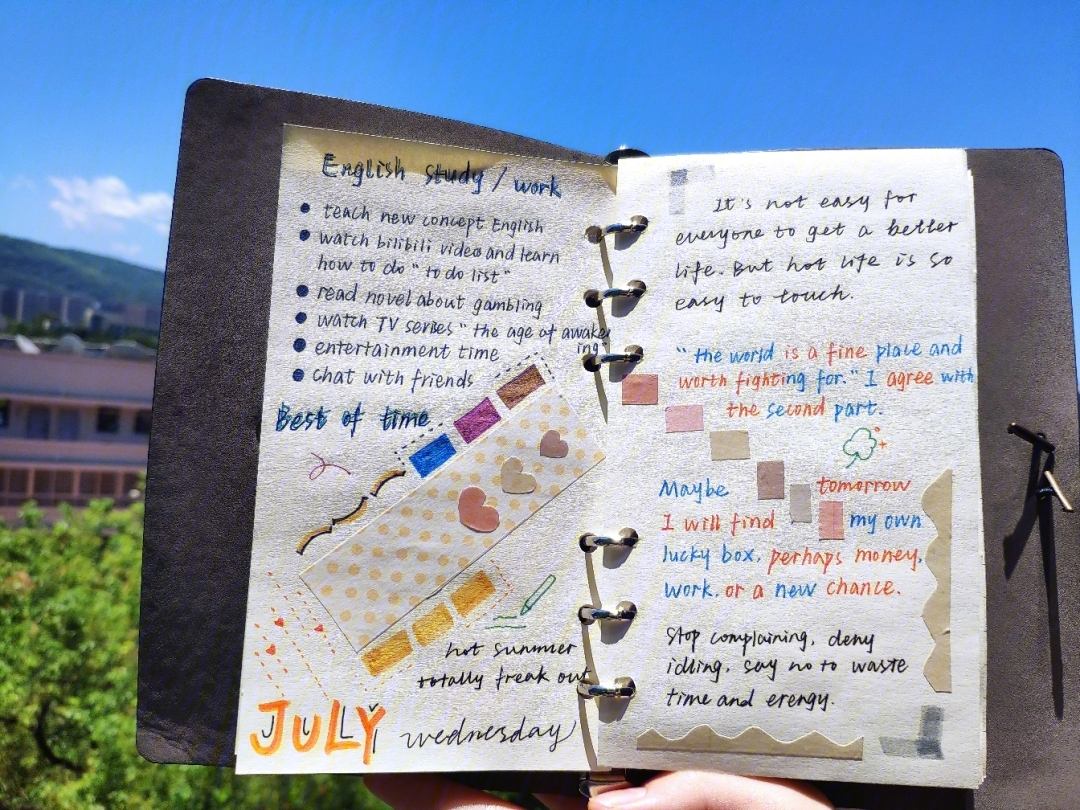 English study / work
teach new concept English
watch bilibili video and learn
how to do "to do list"
read novel about gambling
watch TV series "the age of awake
ing"
entertainment time
chat with friends
Best of time
hot summer
totally freak out
JULY
wednesday
It's not easy for
everyone to get a better
life. But hot life is so
easy to touch.
"the world is a fine place and
worth fighting for." I agree with
the second part.
Maybe tomorrow
I will find my own
lucky box, perhaps money,
work, or a new chance.
Stop complaining, deny
idling, say no to waste
time and erengy.